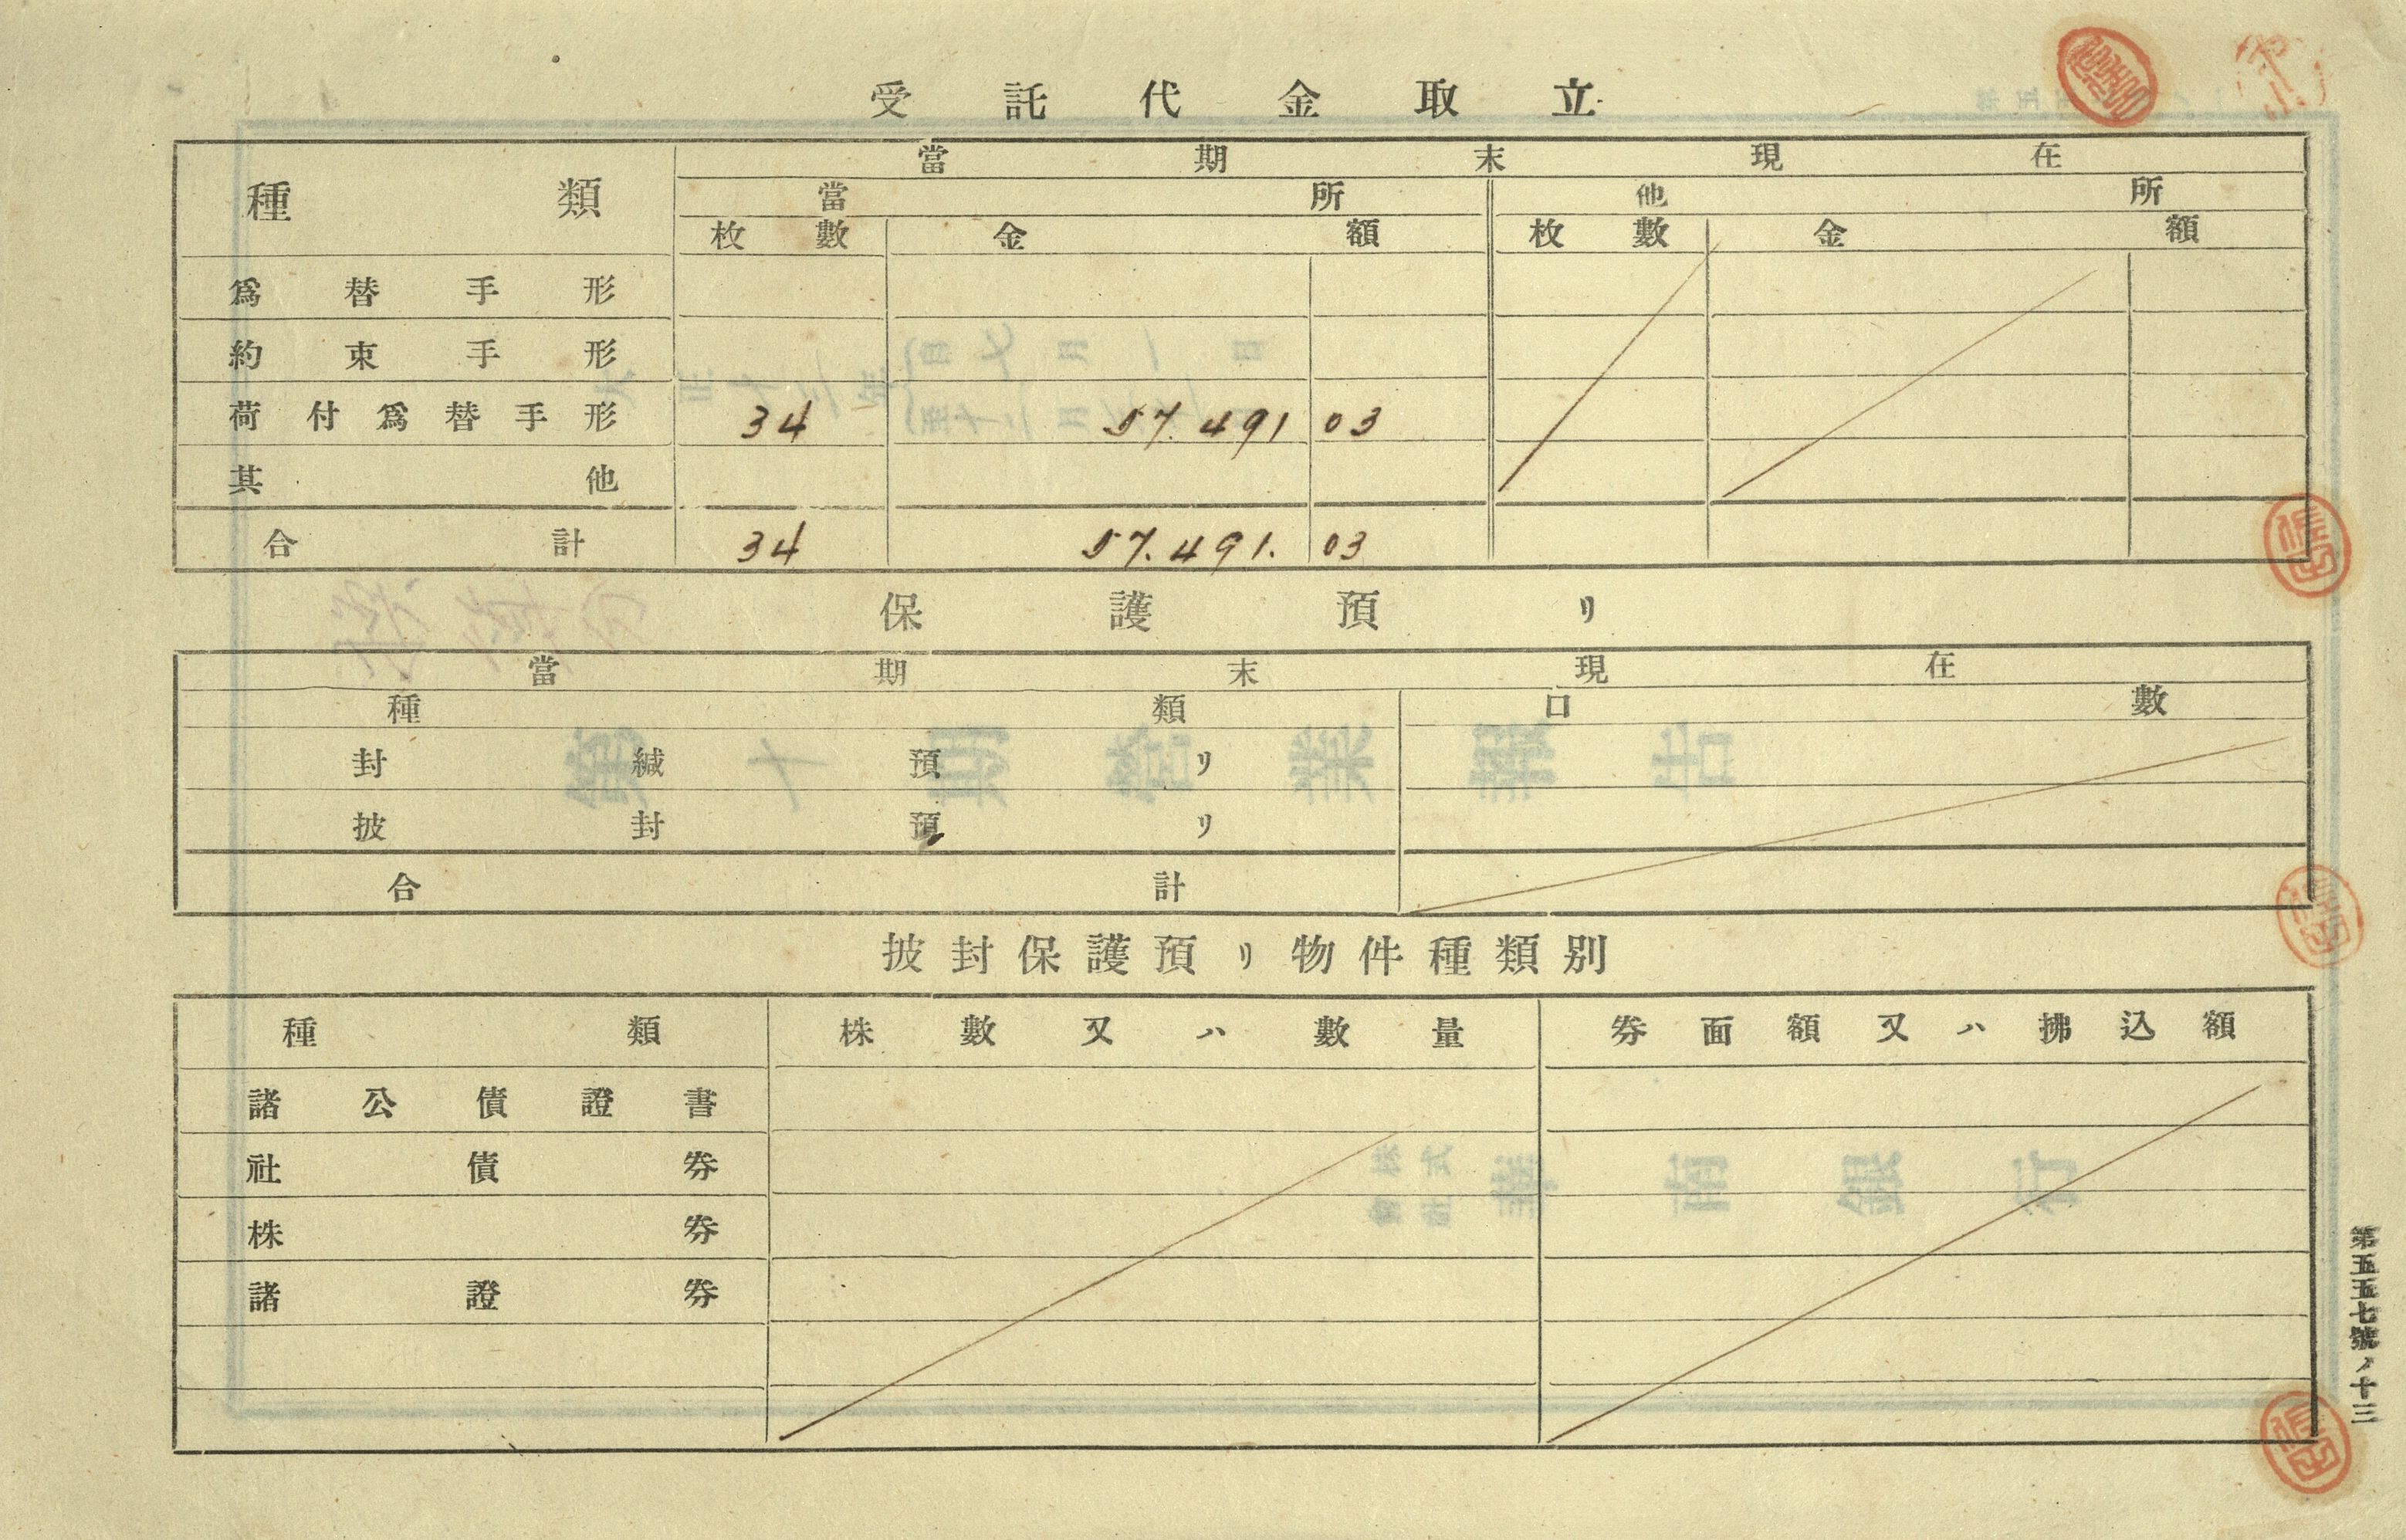 受託代金取立
種類 當期末現在
當所 他所
枚數 金額 枚數 金額
爲替手形
約束手形
荷付爲替手形 34 57.491 03
其他
合計 34 57.491. 03
保護預リ
當期末現在
種類 口數
封緘預リ
披封預リ
合計
披封保護預リ物件種類別
種類 株數又ハ數量 券面額又ハ拂込額
諸公債證書
社債券
株券
諸證券
第五五七號ノ十三
第十期營業報告
株式會社華南銀行